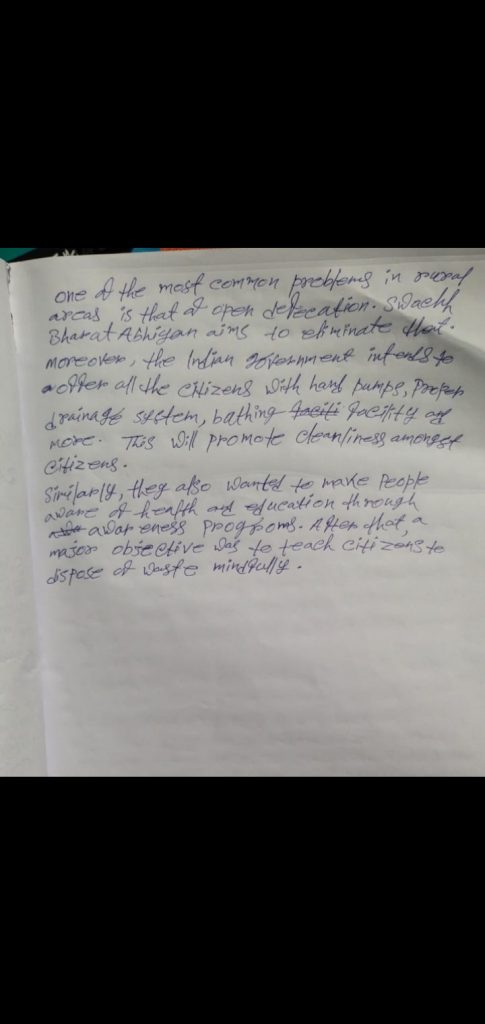 one of the most common problems in rural
areas is that of open defecation. Swachh
Bharat Abhiyan aims to eliminate that.
moreover, the Indian government intends to
offer all the citizens with hand pumps, proper
drainage system, bathing facility and
more. This will promote cleanliness amongst
citizens.
Similarly, they also wanted to make people
aware of health and education through
awareness programs. After that, a
major objective was to teach citizens to
dispose of waste mindfully.